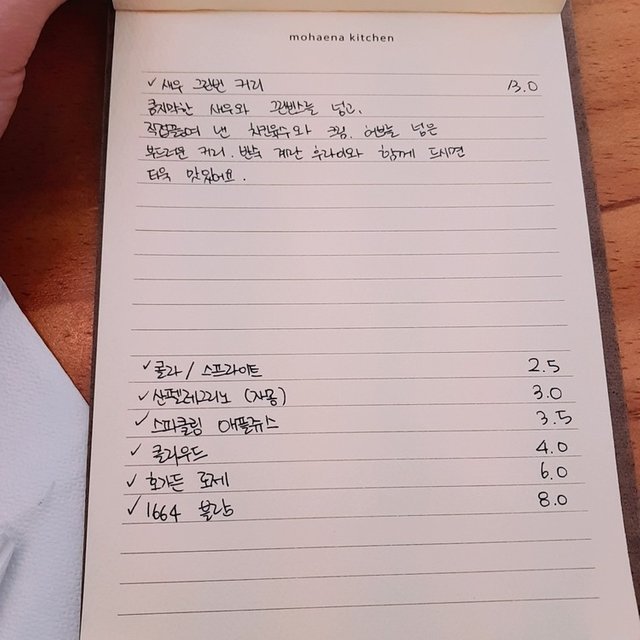 mohaena kitchen
✓새우 그린빈 커리 13.0
큼지막한 새우와 그린빈스를 넣고,
직접끓여 낸 치킨육수와 크림, 허브를 넣은
부드러운 커리. 반숙 계란 후라이와 함께 드시면
더욱 맛있어요.
✓콜라 / 스프라이트 2.5
✓산펠레그리노 (자몽) 3.0
✓스파클링 애플쥬스 3.5
✓클라우드 4.0
✓호가든 로제 6.0
✓1664 블랑 8.0